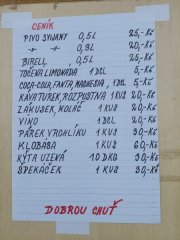 CENÍK
PIVO SVIJANY 0,5L 25,-Kč
-"- -"- 0,3L 20,-Kč
BIRELL 0,5L 25,-Kč
TOČENÁ LIMONÁDA 1DCL 5,-Kč
COCA-COLA, FANTA, MAGNESIA, 1DCL 5,-Kč
KÁVA TUREK, ROZPUSTNÁ 1KUS 20,-Kč
ZÁKUSEK, KOLÁČ 1KUS 20,-Kč
VÍNO 1DCL 20,-Kč
PÁREK V ROHLÍKU 1KUS 30,-Kč
KLOBÁSA 1KUS 60,-Kč
KÝTA UZENÁ 10DKG 30,-Kč
ŠPEKÁČEK 1KUS 30,-Kč
DOBROU CHUŤ